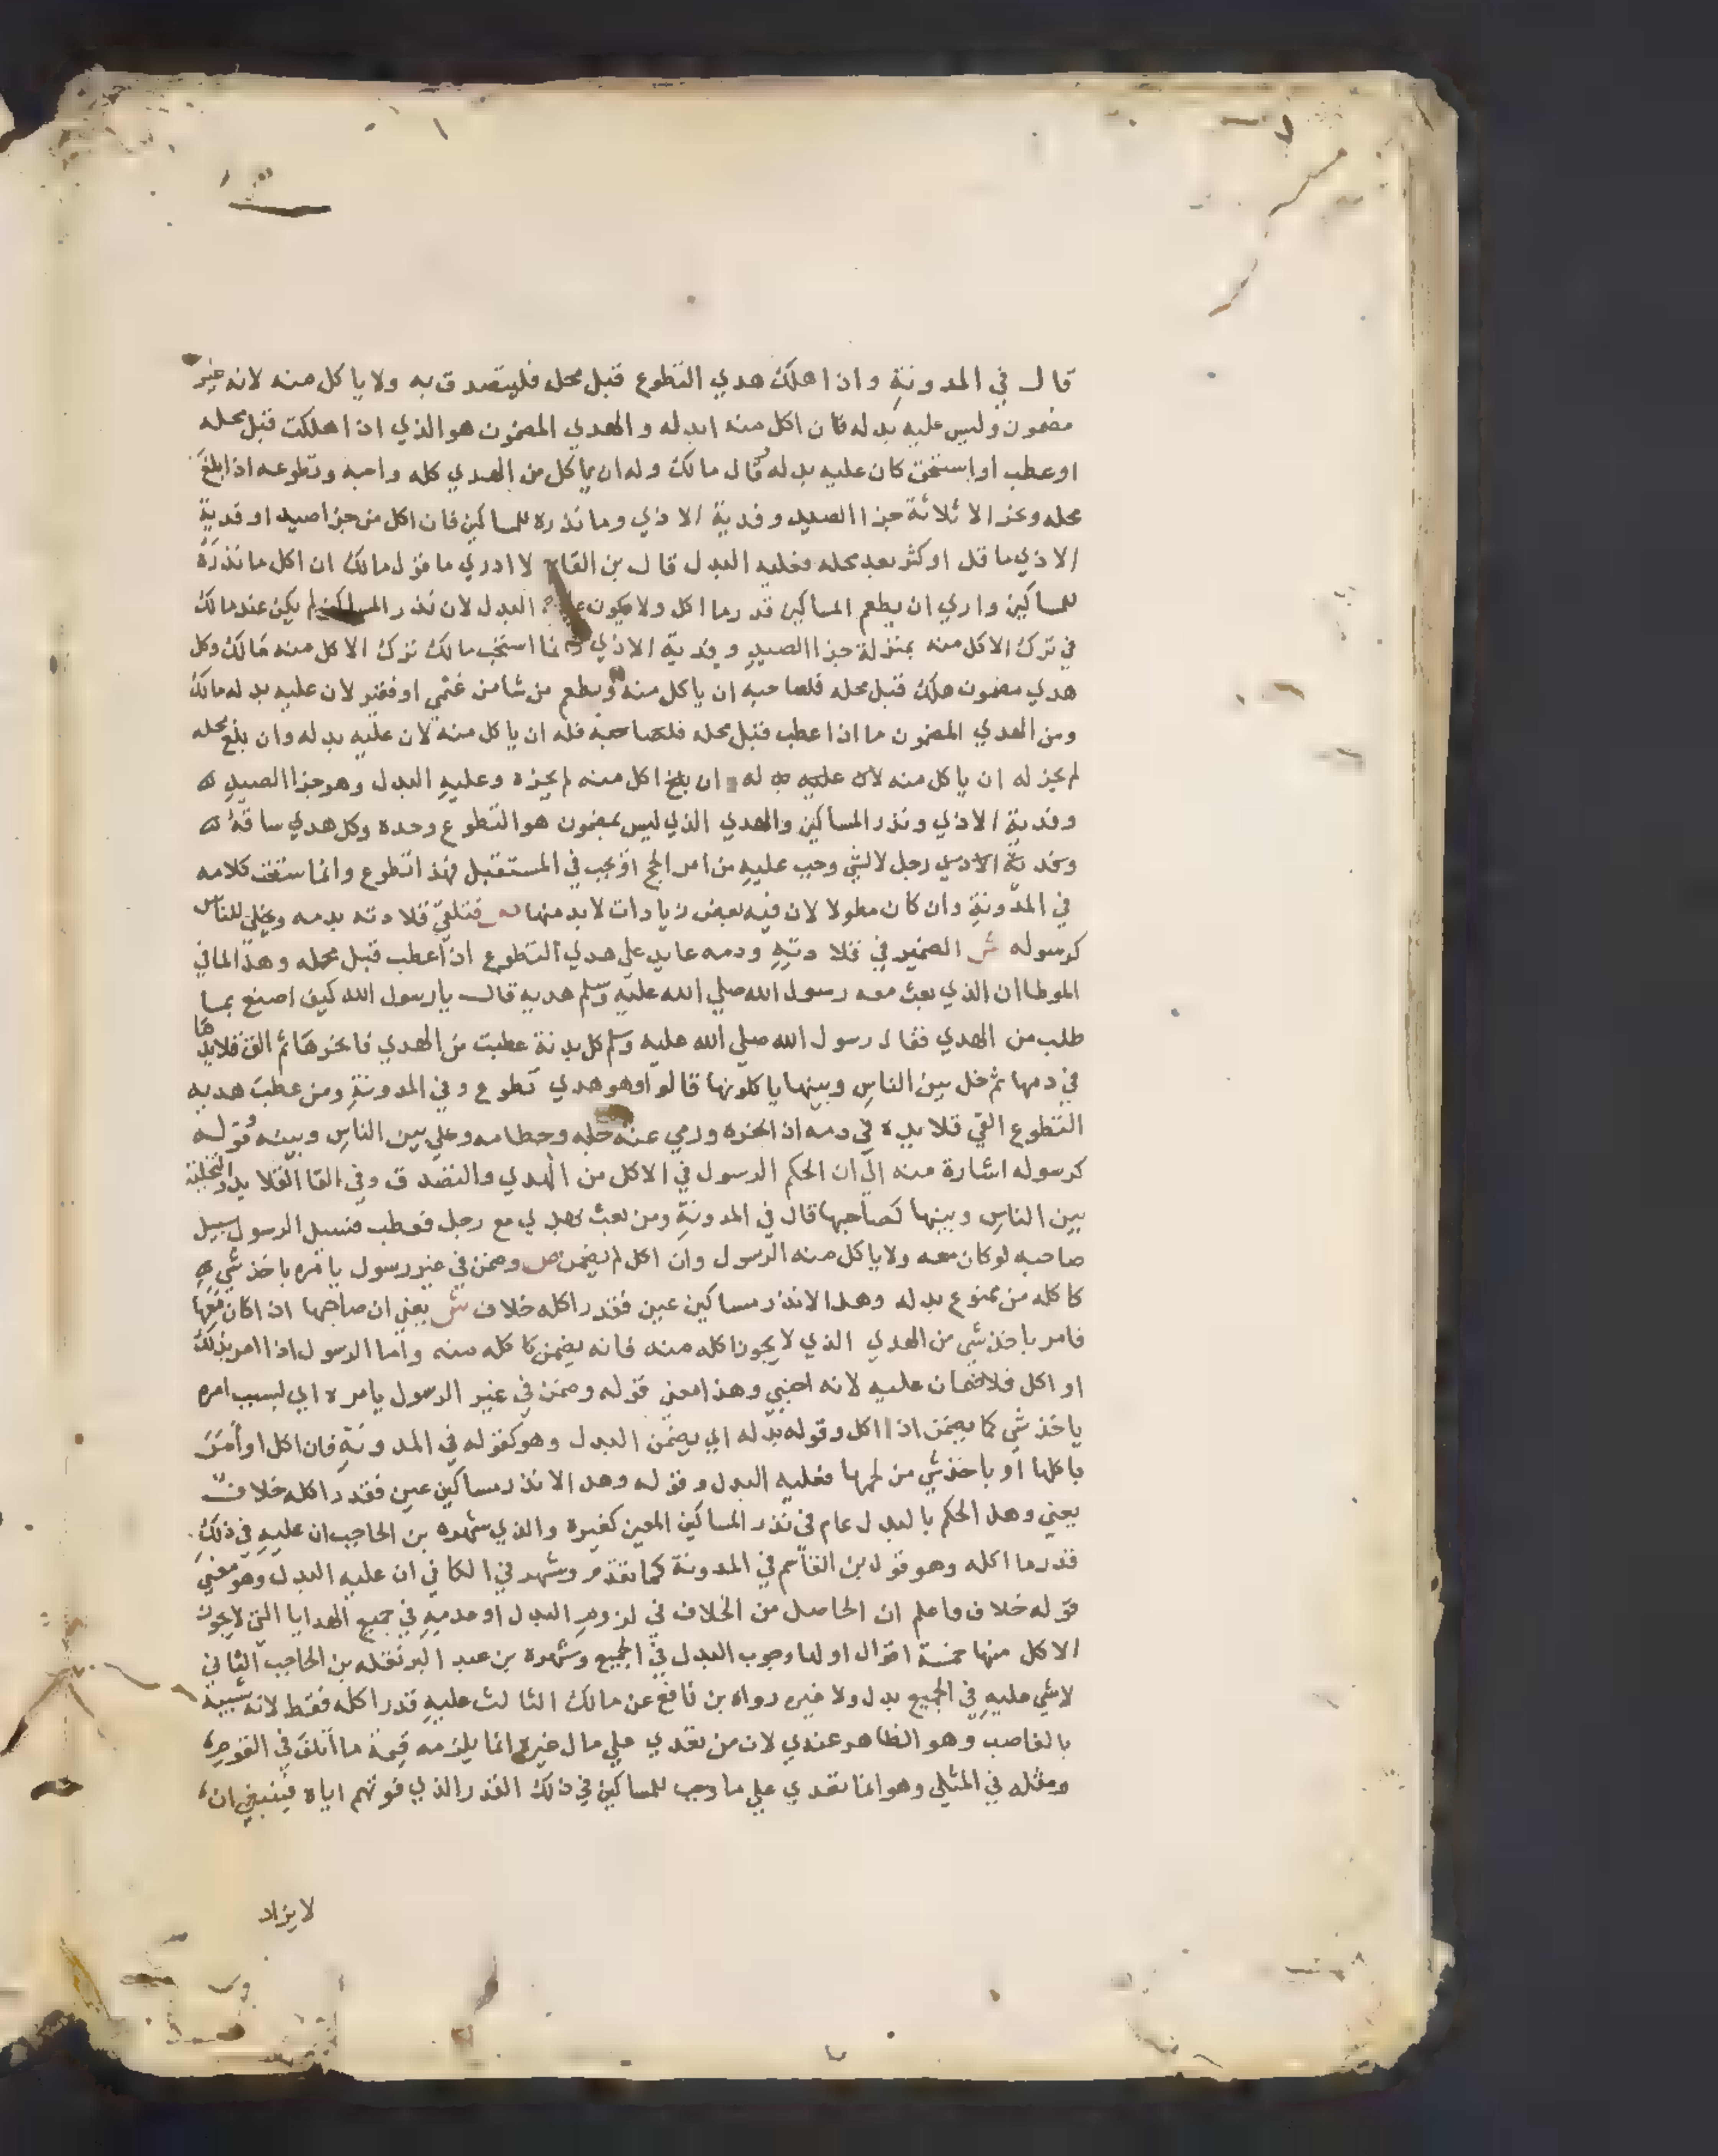 قال في المدونة وان اهلك هدي التطوع قبل محله فليتصدق به ولا ياكل منه لانه غير
مضمون وليس عليه بدله فان اكل منه ابدله والهدي المضمون هو الذي اذا هلك قبل محله
او عطب او استحق كان عليه بدله قال مالك وله ان ياكل من الهدي كله واجبه وتطوعه اذا بلغ
محله ونحر الا ثلاثة جزا الصيد وفدية الاذي وما نذره للمساكين فان اكل من جزا صيد او فدية
الاذي ما قل او كثر بعد محله فعليه البدل قال بن القاسم لا ادري ما قول مالك ان اكل ما نذره
للمساكين واري ان يطعم المساكين قدر ما اكل ولا يكون عليه البدل لان نذر المساكين لم يكن عند مالك
في ترك الاكل منه بمنزلة جزا الصيد وفدية الاذي وانما استحب مالك ترك الاكل منه مالك وكل
هدي مضمون هلك قبل محله فلصاحبه ان ياكل منه ويطعم من شا من غني او فقير لان عليه بدله مالك
ومن الهدي المضمون ما اذا عطب قبل محله فلصاحبه فله ان ياكل منه لان عليه بدله وان بلغ محله
لم يجز له ان ياكل منه لان عليه بدله ان بلغ اكل منه لم يجزه وعليه البدل وهو جزا الصيد
وفدية الاذي ونذر المساكين والهدي الذي ليس بمضمون هو التطوع وحده وكل هدي ساقه
رجل لا لشي وجب عليه من امر الحج او يجب في المستقبل فهذا تطوع وانما سقت كلامه
في المدونة وان كان مطولا لان فيه بعض زيادات لا بد منها ص فتلقي قلادته بدمه ويخلي للناس
كرسوله ش الضمير في قلادته ودمه عايد علي هدي التطوع اذا عطب قبل محله وهذا لما في
الموطا ان الذي بعث معه رسول الله صلي الله عليه وسلم هديه قال يا رسول الله كيف اصنع بما
طلب من الهدي فقال رسول الله صلي الله عليه وسلم كل بدنة عطبت من الهدي فانحرها ثم الق قلايدها
في دمها ثم خل بين الناس وبينها ياكلونها قالوا وهو هدي تطوع وفي المدونة ومن عطب هديه
التطوع القي قلايده في دمه اذا نحره ورمي عنه جله وحطامه وخلي بين الناس وبينه وقوله
كرسوله اشارة منه الي ان الحكم الرسول في الاكل من الهدي والتصدق وفي القا القلايد والتخلية
بين الناس وبينها كصاحبها قال في المدونة ومن بعث بهدي مع رجل فعطب فسبيل الرسول سبيل
صاحبه لو كان معه ولا ياكل منه الرسول وان اكل لم يضمن ص وضمن في غير رسول بامره باخذ شي
كاكله من ممنوع بدله وهل الا نذر مساكين عين فقدر اكله خلاف ش يعني ان صاحبها اذا كان معها
فامر باخذ شي من الهدي الذي لا يجوز اكله منه فانه يضمن كاكله منه واما الرسول اذا امر بذلك
او اكل فلا ضمان عليه لانه اجنبي وهذا معني قوله وضمن في غير الرسول بامره اي بسبب امره
باخذ شي كما يضمن اذا اكل وقوله بدله اي يضمن البدل وهو كقوله في المدونة فان اكل او امر
باكلها او باخذ شي من لحمها فعليه البدل وقوله وهل الا نذر مساكين عين فقدر اكله خلاف
يعني وهل الحكم بالبدل عام في نذر المساكين المعين كغيره والذي شهره بن الحاجب ان عليه في ذلك
قدر ما اكله وهو قول بن القاسم في المدونة كما تقدم وشهر في الكافي ان عليه البدل وهو معني
قوله خلاف واعلم ان الحاصل من الخلاف في لزوم البدل او عدمه في جميع الهدايا التي لا يجوز
الاكل منها خمسة اقوال اولها وجوب البدل في الجميع وشهره بن عبد البر نقله بن الحاجب الثاني
لا شي عليه في الجميع بدل ولا غيره رواه بن نافع عن مالك الثالث عليه قدر اكله فقط لانه شبيه
بالغاصب وهو الظاهر عندي لان من تعدي علي مال غيره انما يلزمه قيمة ما اتلف في المقوم
ومثله في المثلي وهو انما تعدي علي ما وجب للمساكين في ذلك القدر الذي فوتهم اياه فينبغي ان
لا يزاد